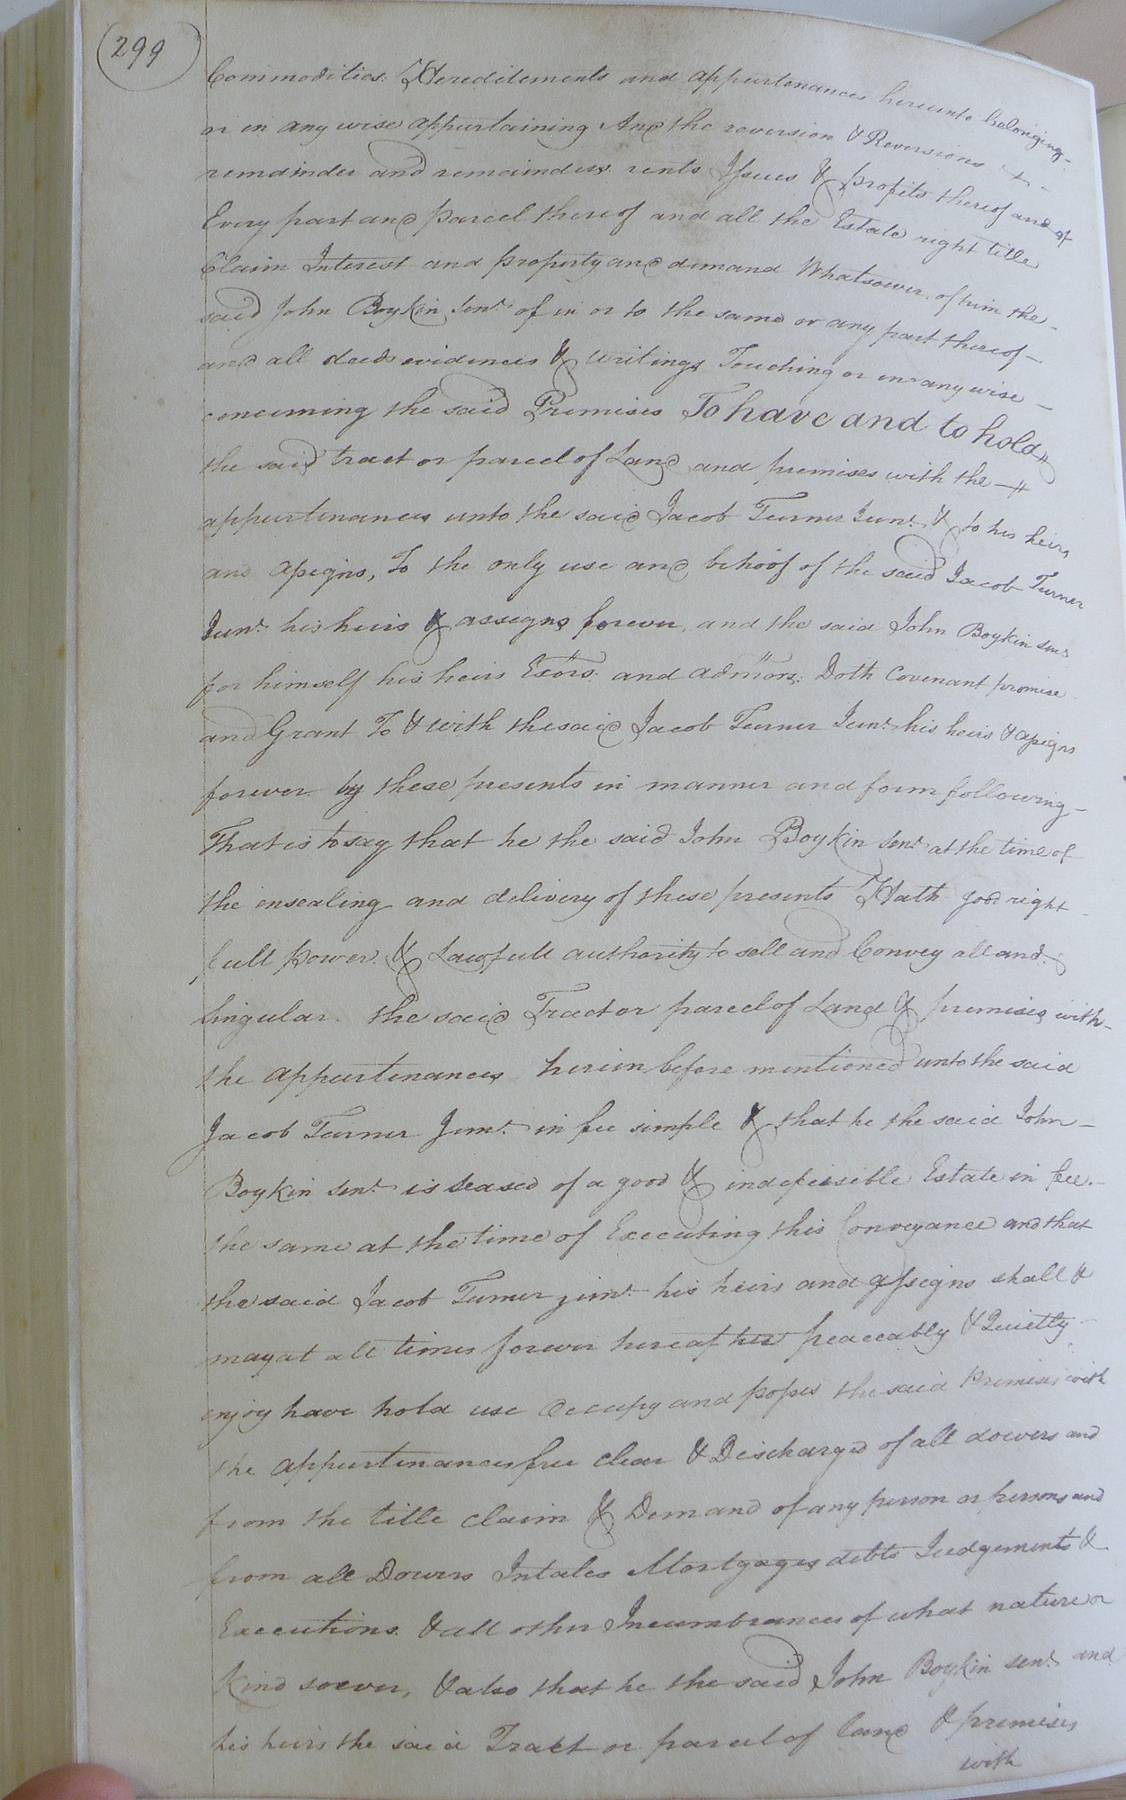 299
Commodities. Hereditements and appurtenances hereunto belonging-
or in any wise appurtaining And the reversion & Reversions
remainder and remainders rents Issues & profits thereof and of
Every part and parcel thereof and all the Estate right title
Claim Interest and property and demand Whatsoever. of him the-
said John Boykin Senr. of in or to the same or any part thereof-
and all deeds evidences & writings Touching or in any wise-
concerning the said Premises To have and to hold
the said tract or parcel of Land and premises with the
appurtinances unto the said Jacob Turner Junr. & to his heirs
and assigns, To the only use and behoof of the said Jacob Turner
Junr. his heirs & assegns forever, and the said John Boykin Senr.
for himself his heirs Exors. and admors; Doth Covenant promise
and Grant To & with the said Jacob Turner Junr. his heirs & assigns
forever by these presents in manner and form following-
That is to say that he the said John Boykin Senr. at the time of
the ensealing and delivery of these presents Hath good right
full power & Lawfull authority to sell and Convey all and
Singular. the said Tract or parcel of Land & premises with-
the appurtinances herein before mentioned unto the said
Jacob Turner Junr. in fee simple & that he the said John-
Boykin Senr. is seased of a good & indefeisible Estate in fee.-
the same at the time of Executing this Conveyance and that
the said Jacob Turner junr. his heirs and assigns shall &
may at all times forever hereafter peaceably & Quietly
enjoy have hold use Occupy and posses the said Premises with
the appurtinances free clear & Discharged of all dowers and
from the title claim & Demand of any person or persons and
from all Dowers Intales Mortgages debts Judgements &
Executions & all other Incumbrances of what nature or
Kind soever, & also that he the said John Boykin senr. and
his heirs the said Tract or parcel of land & premises
with